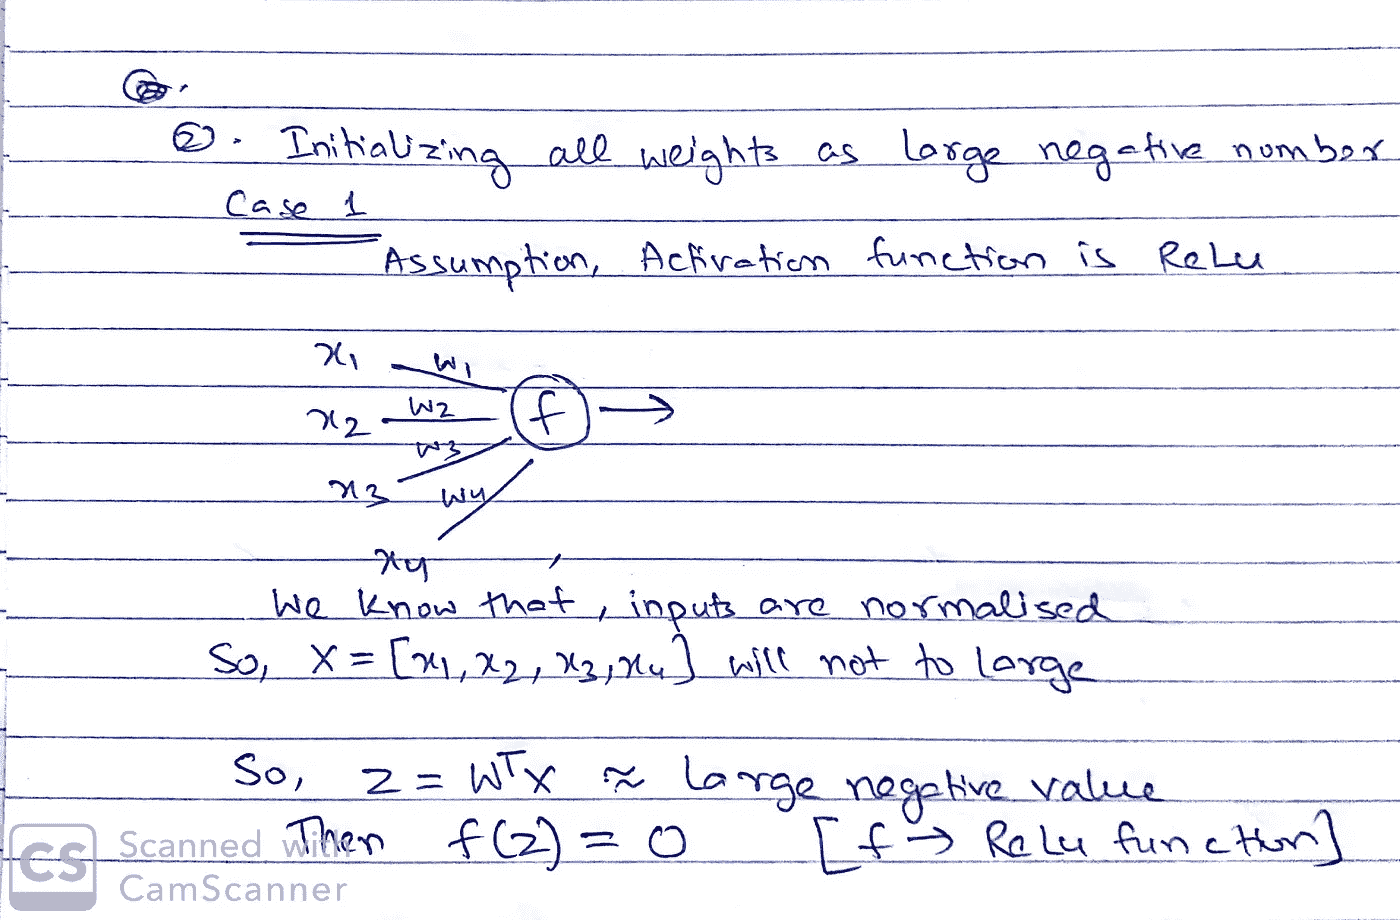 ②. Initializing all weights as large negative number
Case 1
Assumption, Activation function is ReLu
x1 w1
x2 w2 f →
w3
x3 w4
x4
We know that, inputs are normalised
So, X = [x1, x2, x3, x4] will not to large
So, z = WᵀX ≈ Large negative value
Then f(z) = 0 [f → ReLu function]
CS Scanned with
CamScanner